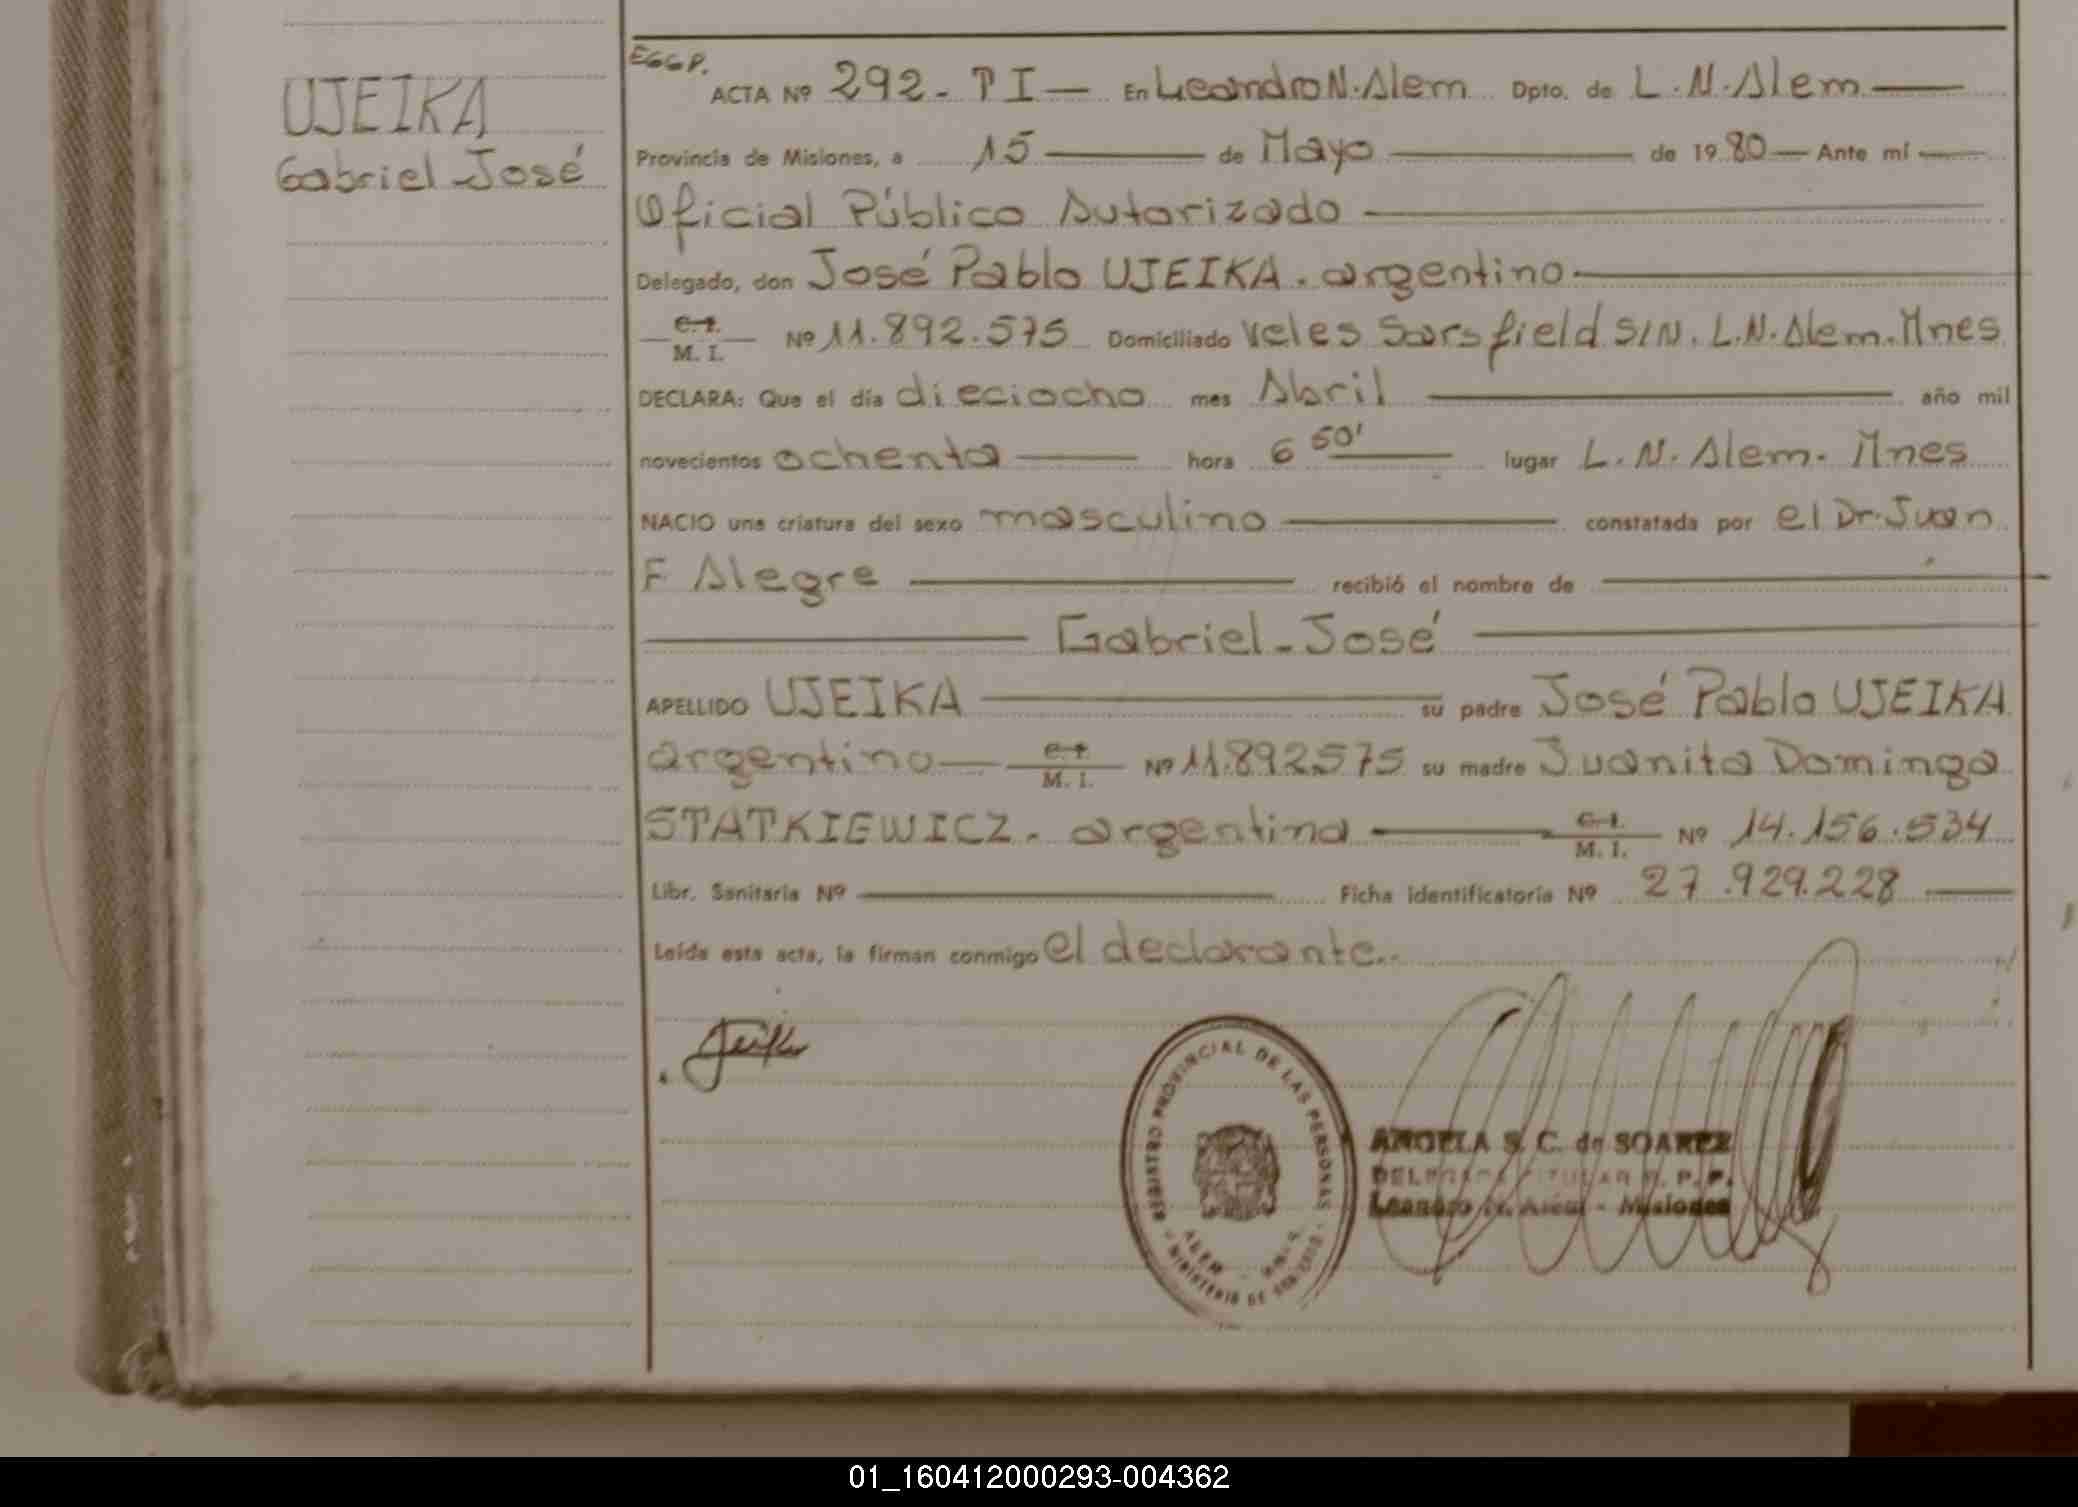 UJEIKA
Gabriel José
EGGP.
ACTA Nº 292-TI— En Leandro N. Alem Dpto. de L. N. Alem —
Provincia de Misiones, a 15 — de Mayo — de 1980 — Ante mí —
Oficial Público Autorizado —
Delegado, don José Pablo UJEIKA. argentino —
C. I.
M. I. Nº 11.892.575 Domiciliado Veles Sarsfield S/N. L.N. Alem. Mnes
DECLARA: Que el día dieciocho mes Abril — año mil
novecientos ochenta — hora 6 50' — lugar L. N. Alem. Mnes
NACIO una criatura del sexo masculino — constatada por el Dr. Juan
F Alegre — recibió el nombre de —
— Gabriel-José —
APELLIDO UJEIKA — su padre José Pablo UJEIKA
argentino — C. I. M. I. Nº 11.892575 su madre Juanita Dominga
STATKIEWICZ. argentina — C. I. M. I. Nº 14.156.534
Libr. Sanitaria Nº — Ficha identificatoria Nº 27.929.228 —
Leída esta acta, la firman conmigo el declarante..
REGISTRO PROVINCIAL DE LAS PERSONAS
ALEM
MINISTERIO DE
ANGELA S. C. de SOAREZ
Leandro N. Alem - Misiones
01_160412000293-004362